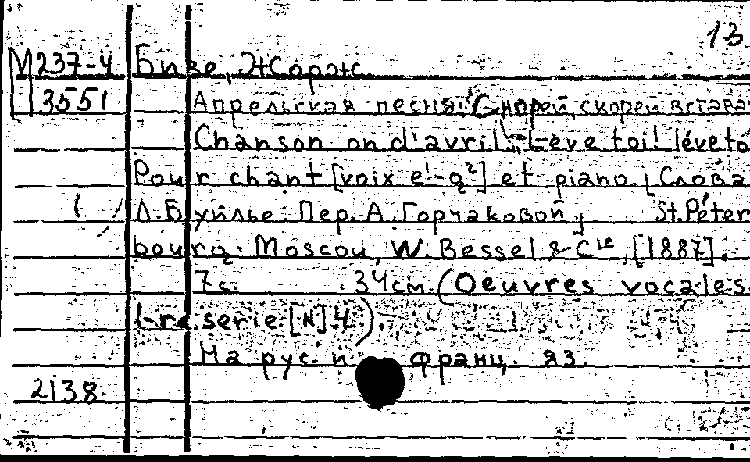 13
М237-4 Бизе, Жорж.
3551 Апрельская песня: Скорей, скорей встава
Chanson on d'avril. Lève toi! lève to
Pour chant [voix e¹-g²] et piano, Слова
Л. Буилье. Пер. А. Горчаковой, St. Péter
bourg. Moscou, W. Bessel & Cie, [1887].
7с. 34см. (Oeuvres vocales.
1-re serie [N] 4).
На рус. и франц. яз.
2138